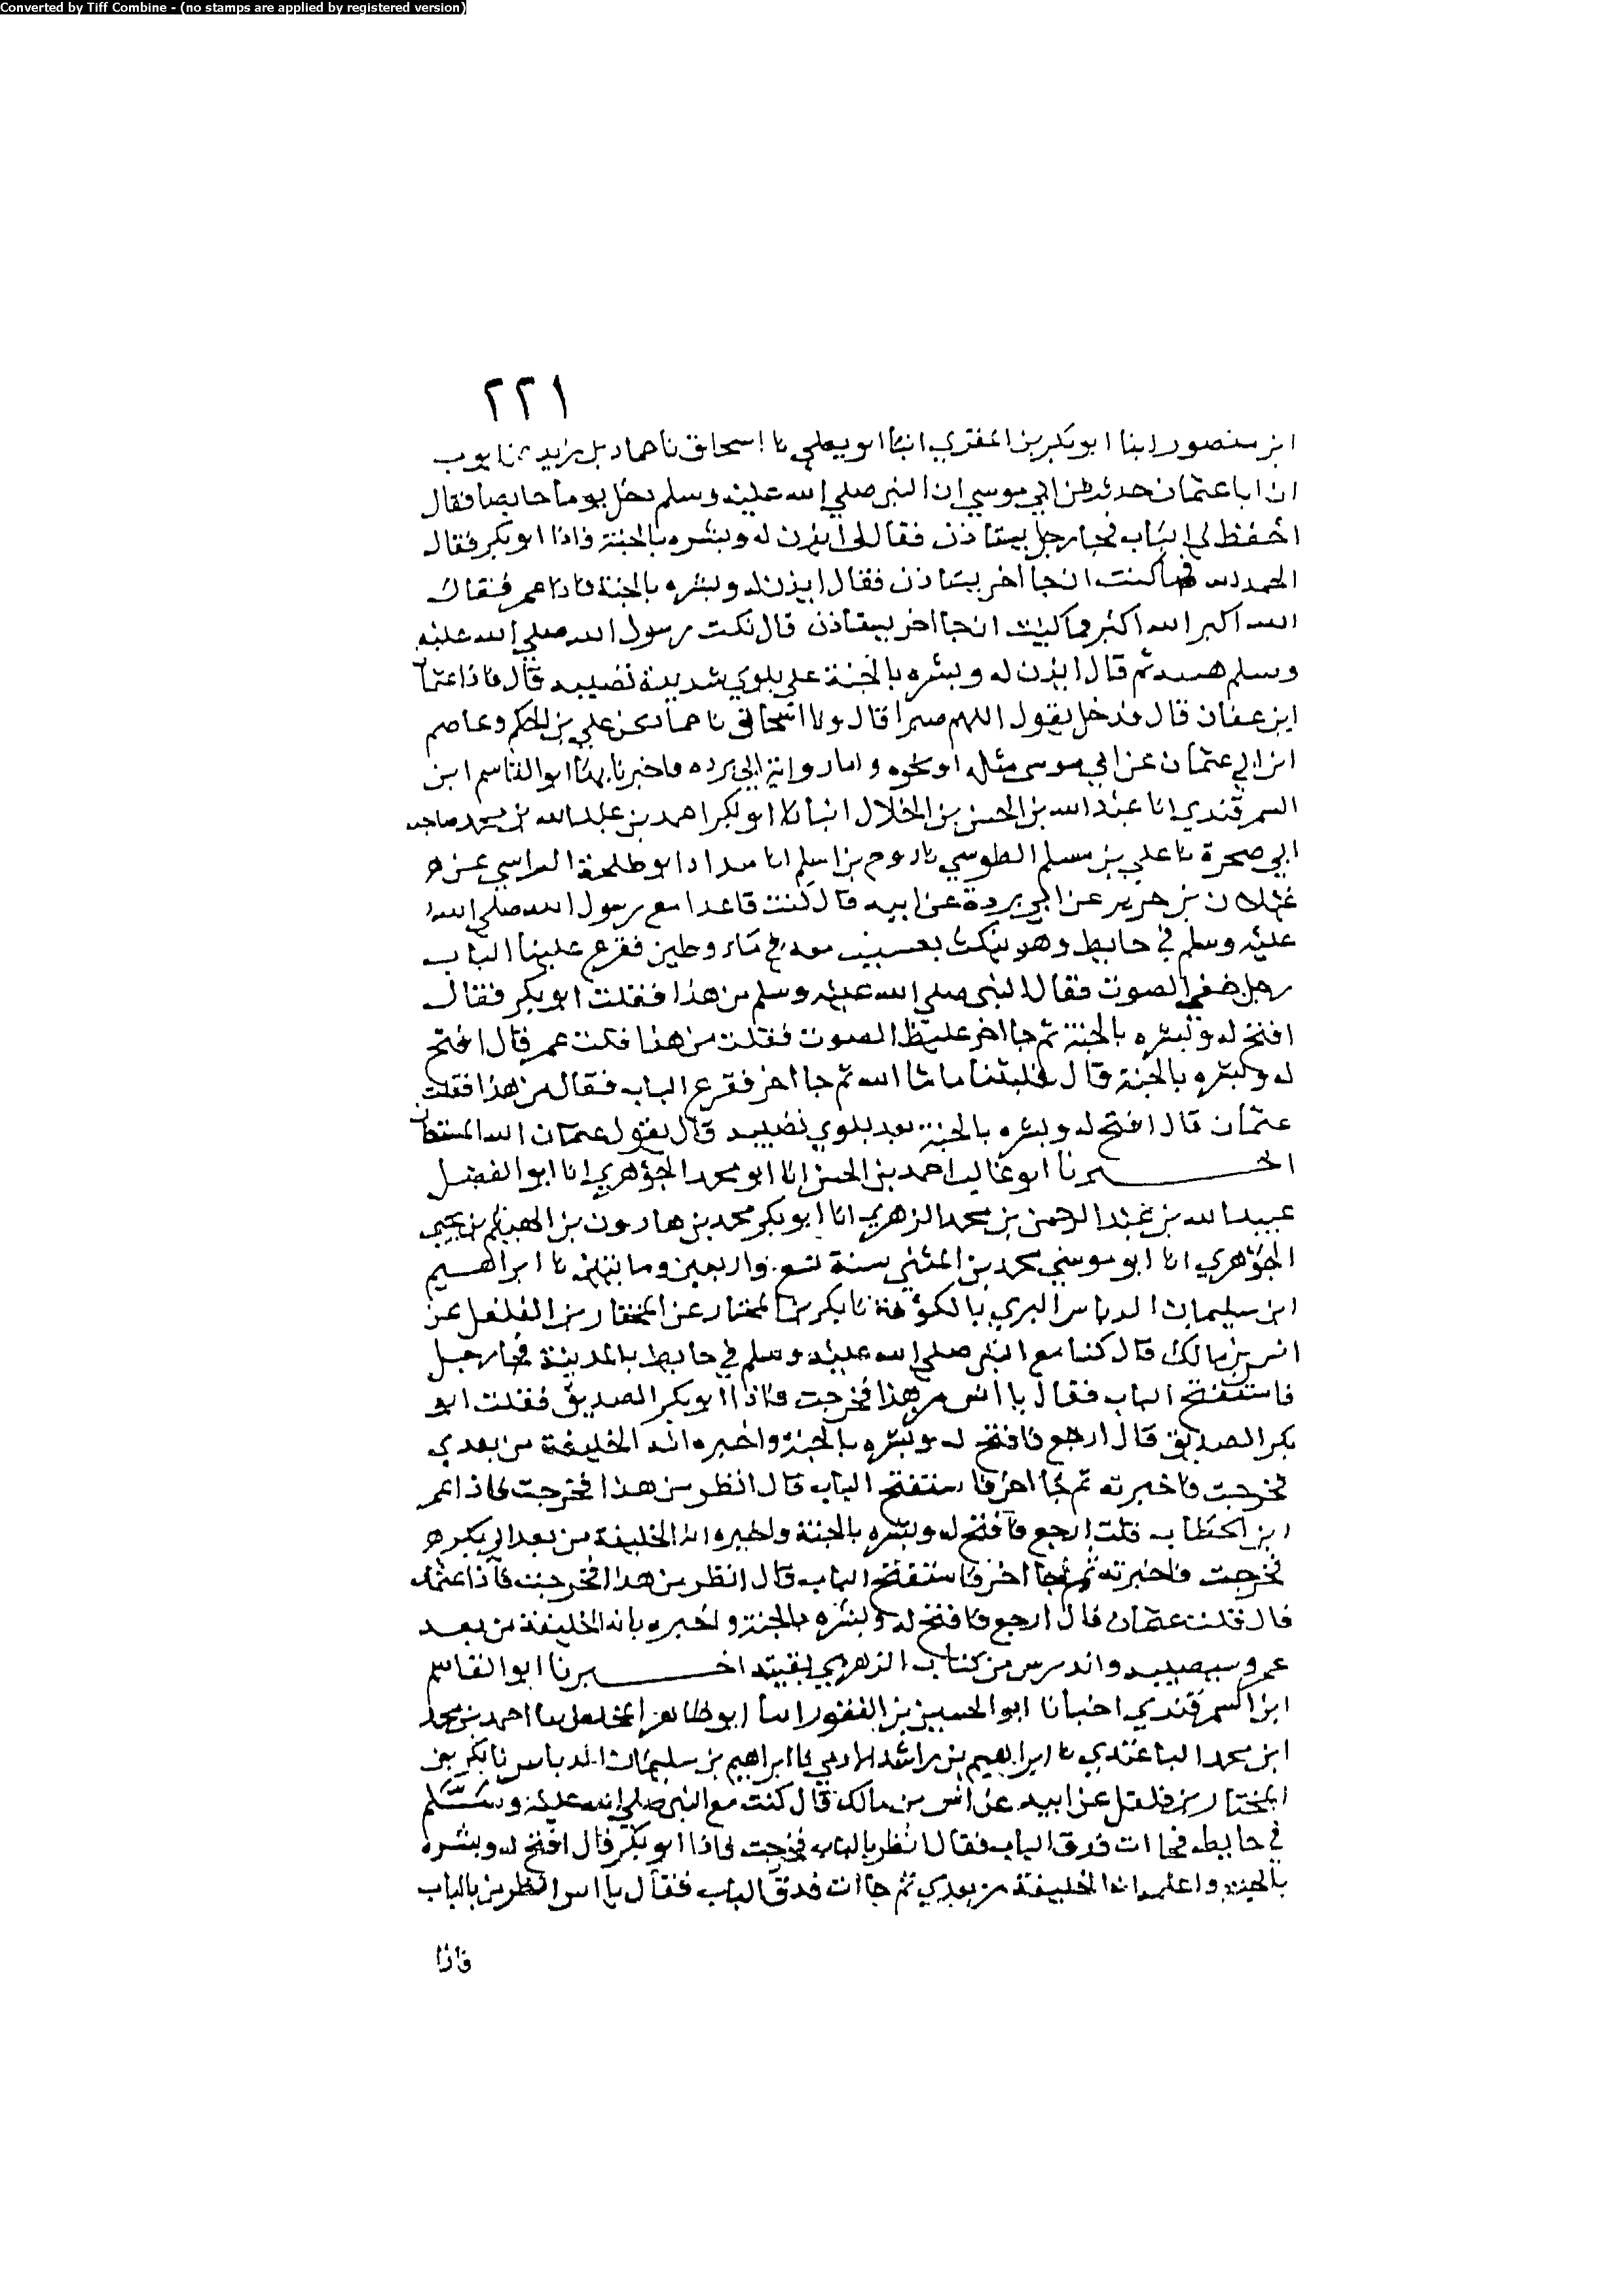 Converted by Tiff Combine - (no stamps are applied by registered version)
٢٢١
ابن منصور ابنا ابو بكر بن المقري انبا ابو يعلي نا اسحاق نا حماد بن زيد عن ايوب
ان ابا عثمان حدثه عن ابي موسي ان النبي صلي الله عليه وسلم دخل يوما حايطا فقال
احفظ لي الباب فجا رجل يستاذن فقال لي ايذن له وبشره بالجنة فاذا ابو بكر فقال
الحمد لله فما كنت ان جا اخر يستاذن فقال ايذن له وبشره بالجنة فاذا عمر فقال
الله اكبر الله اكبر فما كنت ان جا اخر يستاذن قال نكت رسول الله صلي الله عليه
وسلم ثم قال ايذن له وبشره بالجنة علي بلوي شديدة تصيبه قال فاذا عثما
ابن عفان قال فدخل يقول اللهم صبرا قال ونا اسحاق نا حماد عن علي بن الحكم وعاصم
ابن ابي عثمان عن ابي موسي مثله او نحوه واما رواية ابي برده فاخبرنا بها ابو القاسم ابن
السمرقندي انا عبد الله بن الحسن بن الخلال انبانا ابو بكر احمد بن عبد الله بن صاحب
ابي صحرة نا علي بن مسلم الطوسي نا روح بن اسلم انا ابو طلحة الراسبي عن
غيلان بن جرير عن ابي بردة عن ابيه قال كنت قاعدا مع رسول الله صلي الله
عليه وسلم في حايط وهو ينكت بعسيب معه في ماء وطين فقرع علينا الباب
رجل خفي الصوت فقال النبي صلي الله عليه وسلم من هذا فقلت ابو بكر فقال
افتح له وبشره بالجنة ثم جا اخر غليظ الصوت فقلت من هذا فقلت عمر قال افتح
له وبشره بالجنة قال فلبثنا ما شا الله ثم جا اخر فقرع الباب فقال من هذا فقلت
عثمان قال افتح له وبشره بالجنة بعد بلوي تصيبه قال يقول عثمان الله المستعان
اخبرنا ابو غالب احمد بن الحسن انا ابو محمد الجوهري انا ابو الفضل
عبيد الله بن عبد الرحمن بن محمد الزهري انا ابو بكر محمد بن هارون بن الهيثم بن يحيي
الجوهري انا ابو موسي محمد بن المثني سنة تسع واربعين ومايتين نا ابراهيم
ابن سليمان الدباس البري بالكوفة نا بكر بن المختار عن المختار بن الفلفل عن
انس بن مالك قال كنا مع النبي صلي الله عليه وسلم في حايط بالمدينة فجا رجل
فاستفتح الباب فقال يا انس من هذا فخرجت فاذا ابو بكر الصديق فقلت ابو
بكر الصديق قال ارجع فافتح له وبشره بالجنة واخبره انه الخليفة من بعدي
فخرجت فاخبرته ثم جا اخر فاستفتح الباب قال انظر من هذا فخرجت فاذا عمر
ابن الخطاب قلت ارجع فافتح له وبشره بالجنة واخبره انه الخليفة من بعد ابي بكر
فخرجت فاخبرته ثم جا اخر فاستفتح الباب قال انظر من هذا فخرجت فاذا عثمان
قال قلت عثمان قال ارجع فافتح له وبشره بالجنة واخبره بانه الخليفة من بعد
عمر وسيصيبه واندرس من كتاب الزهري بقيته اخبرنا ابو القاسم
ابن السمرقندي اخبانا ابو الحسين بن النقور انبا ابو طاهر المخلص نا احمد بن محمد
ابن محمد الباغندي نا ابراهيم بن راشد الادمي نا ابراهيم بن سليمان الدباس نا بكر بن
المختار بن فلفل عن ابيه عن انس بن مالك قال كنت مع النبي صلي الله عليه وسلم
في حايط فجا ات فدق الباب فقال انظر بالباب فخرجت فاذا ابو بكر قال افتح له وبشره
بالجنة واعلمه انه الخليفة من بعدي ثم جا ات فدق الباب فقال يا انس انظر من بالباب
فاذا